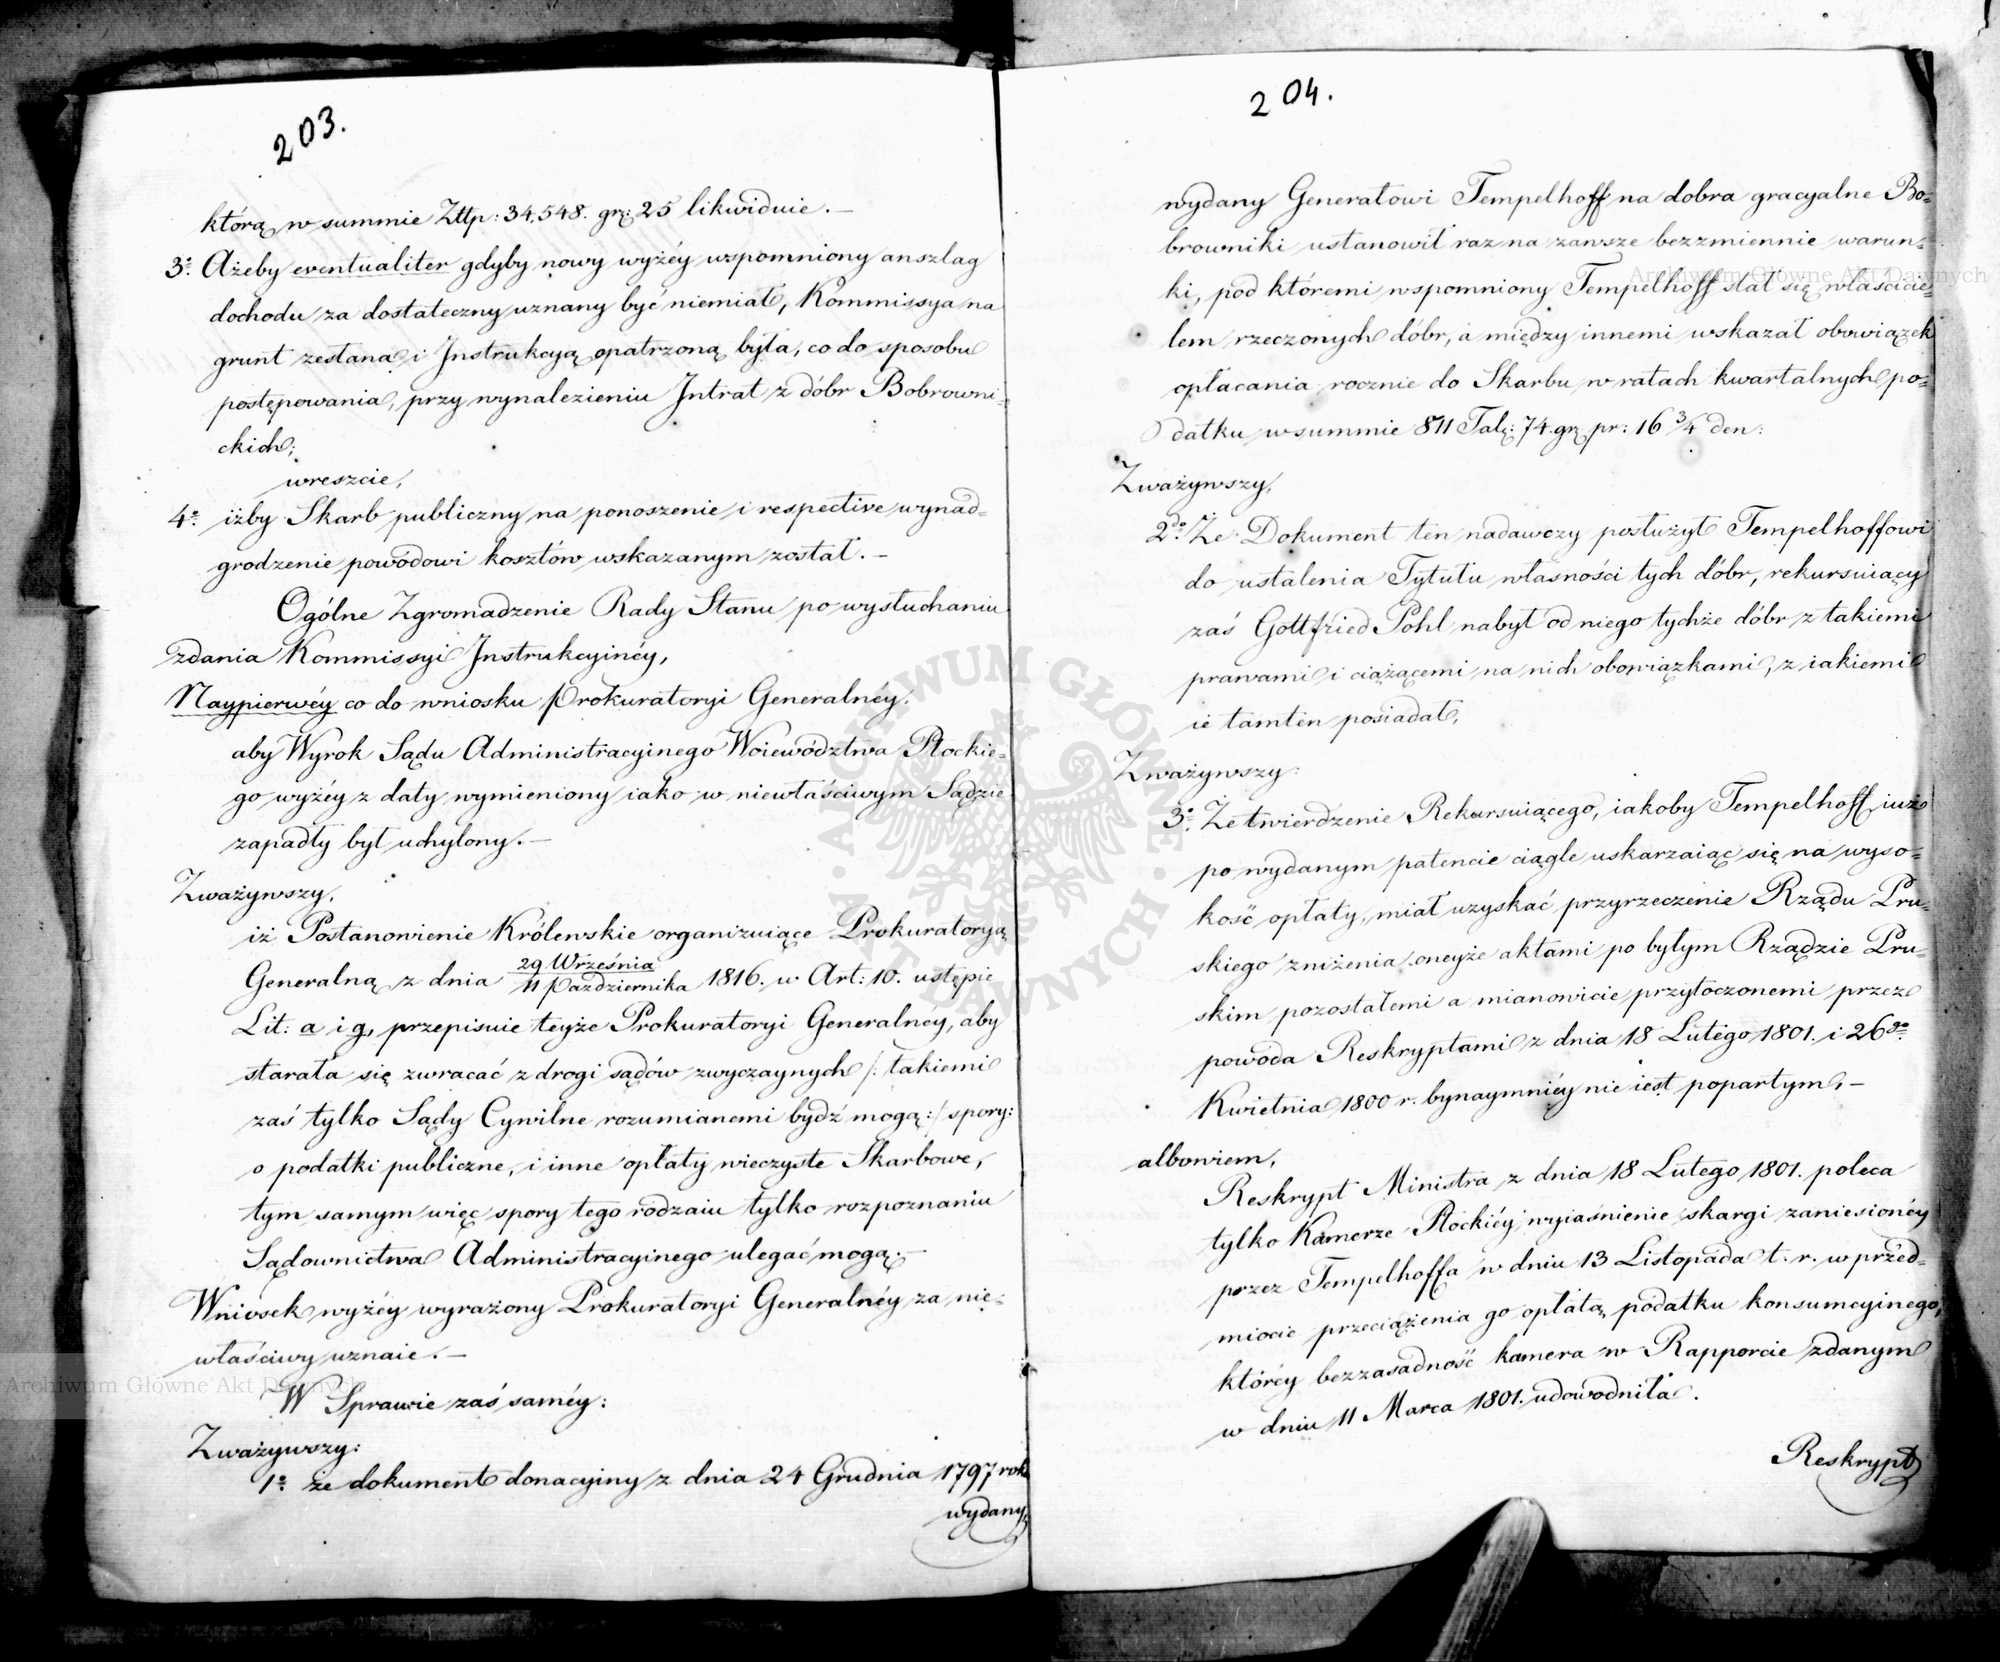 203.
którą w summie Zttp: 34,548. gr: 25 likwiduie. —
3º. Ażeby eventualiter gdyby nowy wyżéy wspomniony anszlag
dochodu za dostateczny uznany być niemiał, Kommissya na
grunt zesłana i Instrukcyą opatrzoną była, co do sposobu
postępowania, przy wynalezieniu Intrat z dóbr Bobrowni-
ckich;
wreszcie,
4º. iżby Skarb publiczny na ponoszenie i respective wynad-
grodzenie powodowi kosztów wskazanym został. —
Ogólne Zgromadzenie Rady Stanu po wysłuchaniu
zdania Kommissyi Instrukcyinéy,
Naypierwéy co do wniosku Prokuratoryi Generalnéy,
aby Wyrok Sądu Administracyinego Woiewództwa Płockie-
go wyżéy z daty wymieniony iako w niewłaściwym Sądzie
zapadły był uchylony. —
Zważywszy,
iż Postanowienie Królewskie organizuiące Prokuratoryą
Generalną z dnia 29 Września / 11 Października 1816. w Art: 10. ustępie
Lit: a i g, przepisuie teyże Prokuratoryi Generalnéy, aby
starała się zwracać z drogi sądów zwyczaynych /: takiemi
zaś tylko Sądy Cywilne rozumianemi bydź mogą :/ spory:
o podatki publiczne, i inne opłaty wieczyste Skarbowe,
tym samym więc spory tego rodzaiu tylko rozpoznaniu
Sądownictwa Administracyinego ulegać mogą. —
Wniosek wyżéy wyrażony Prokuratoryi Generalnéy za nie-
właściwy uznaie. —
W Sprawie zaś saméy:
Zważywszy:
1º. że dokument donacyiny z dnia 24 Grudnia 1797 roku
wydany
204.
wydany Generałowi Tempelhoff na dobra gracyalne Bo-
browniki ustanowił raz na zawsze bezzmiennie warun-
ki, pod któremi wspomniony Tempelhoff stał się właścicie-
lem rzeczonych dóbr, a między innemi wskazał obowiązek
opłacania rocznie do Skarbu w ratach kwartalnych po-
datku w summie 811 Tal: 74 gr pr: 16 3/4 den:
Zważywszy,
2do. Że Dokument ten nadawczy posłużył Tempelhoffowi
do ustalenia Tytułu własności tych dóbr, rekursuiący
zaś Gottfried Pohl nabył od niego tychże dóbr z takiemi
prawami i ciążącemi na nich obowiązkami, z iakiemi
ie tamten posiadał,
Zważywszy:
3º. Że twierdzenie Rekursuiącego, iakoby Tempelhoff iuż
po wydanym patencie ciągle uskarzaiąc się na wyso-
kość opłaty, miał uzyskać przyrzeczenie Rządu Pru-
skiego zniżenia oneyże aktami po byłym Rządzie Pru-
skim pozostałemi a mianowicie przytoczonemi przez
powoda Reskryptami z dnia 18 Lutego 1801. i 26go.
Kwietnia 1800 r. bynaymniéy nie iest popartym, —
albowiem,
Reskrypt Ministra z dnia 18 Lutego 1801. poleca
tylko Kamerze Płockiéy wyiaśnienie skargi zaniesionéy
przez Tempelhoffa w dniu 13 Listopada t. r. w przed-
miocie przeciążenia go opłatą podatku konsumcyinego,
któréy bezzasadność kamera w Rapporcie zdanym
w dniu 11 Marca 1801. udowodniła.
Reskrypt
Archiwum Główne Akt Dawnych
Archiwum Główne Akt Dawnych
ARCHIWUM GŁÓWNE AKT DAWNYCH